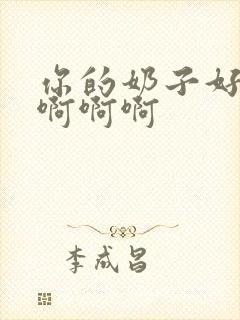 你的奶子好
啊啊啊
李成昌